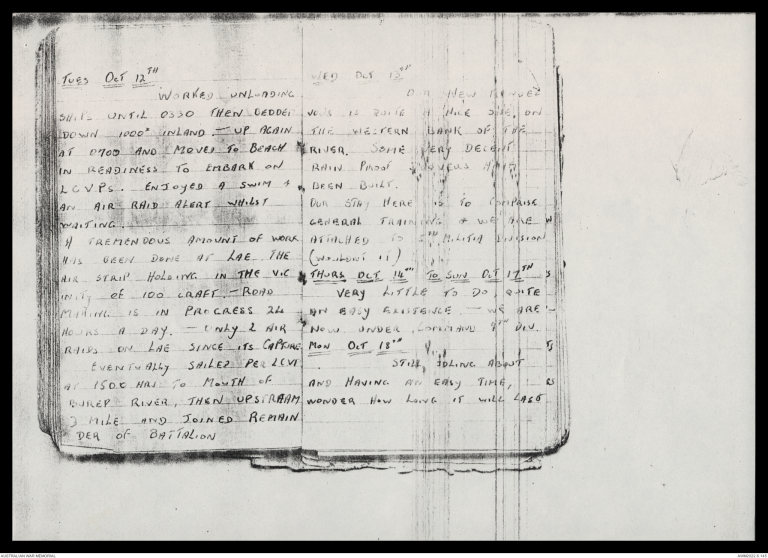 TUES OCT 12TH
WORKED UNLOADING
SHIPS UNTIL 0330 THEN BEDDED
DOWN 1000x INLAND. — UP AGAIN
AT 0700 AND MOVED TO BEACH
IN READINESS TO EMBARK ON
LCVPS. ENJOYED A SWIM +
AN AIR RAID ALERT WHILST
WAITING.
A TREMENDOUS AMOUNT OF WORK
HAS BEEN DONE AT LAE THE
AIR STRIP HOLDING IN THE VIC
INITY OF 100 CRAFT. — ROAD
MAKING IS IN PROGRESS 24
HOURS A DAY. — ONLY 2 AIR
RAIDS ON LAE SINCE ITS CAPTURE
EVENTUALLY SAILED PER LCVP
AT 1500 HRS TO MOUTH OF
BUREP RIVER, THEN UPSTREAM
MILE AND JOINED REMAIN
DER OF BATTALION
WED OCT 13TH
OUR NEW RENDEZ
VOUS IS QUITE A NICE SITE, ON
THE WESTERN BANK OF THE
RIVER. SOME VERY DECENT
RAIN PROOF HAD
BEEN BUILT.
OUR STAY HERE IS TO COMPRISE
GENERAL TRAINING + WE ARE
ATTACHED TO MILITIA DIVISION
THURS OCT 14TH TO SUN OCT 17TH
VERY LITTLE TO DO, QUITE
AN EASY EXISTENCE. — WE ARE
NOW UNDER COMMAND DIV.
MON OCT 18TH
STILL IDLING ABOUT
AND HAVING AN EASY TIME,
WONDER HOW LONG IT WILL LAST
AUSTRALIAN WAR MEMORIAL